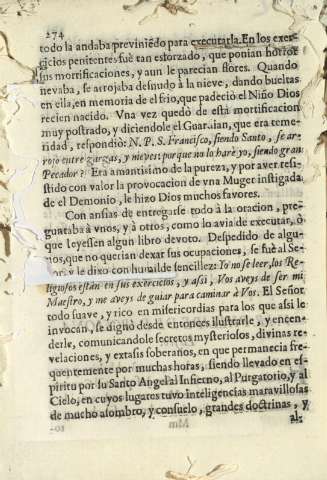 274
todo la andaba previniẽdo para executarla. En los exer-
cicios penitentes fuè tan esforzado, que ponian horror
sus mortificaciones, y aun le parecian flores. Quando
nevaba, se arrojaba desnudo à la nieve, dando bueltas
en ella, en memoria de el frio, que padeciò el Niño Dios
recien nacido. Vna vez quedò de està mortificacion
muy postrado, y diciendole el Guardian, que era teme-
ridad, respondiò: N. P. S. Francisco, siendo Santo, se ar-
rojo entre zarzas, y nieves: porque no lo harè yo, siendo gran
Pecador? Era amantisimo de la pureza, y por aver resis-
tido con valor la provocacion de vna Muger instigada
de el Demonio, le hizo Dios muchos favores.
Con ansias de entregarse todo à la oracion, pre-
guntaba à vnos, y à otros, como lo avia de executar, ò
que leyessen algun libro devoto. Despedido de algu-
nos, que no querian dexar sus ocupaciones, se fuè al Se-
y le dixo con humilde sencillez: Io no se leer, los Re-
ligiosos estàn en sus exercicios, y asi, Vos aveys de ser mi
Maestro, y me aveys de guiar para caminar à Vos. El Señor
todo suave, y rico en misericordias para los que asi le
invocan, se dignò desde entonces ilustrarle, y encen-
derle, comunicandole secretos mysteriosos, divinas re-
velaciones, y extasis soberanos, en que permanecia fre-
quentemente por muchas horas; siendo llevado en es-
piritu por su Santo Angel al Infierno, al Purgatorio, y al
Cielo, en cuyos lugares tuvo Inteligencias maravillosas
de mucho asombro, y consuelo, grandes doctrinas, y
al-
Mm